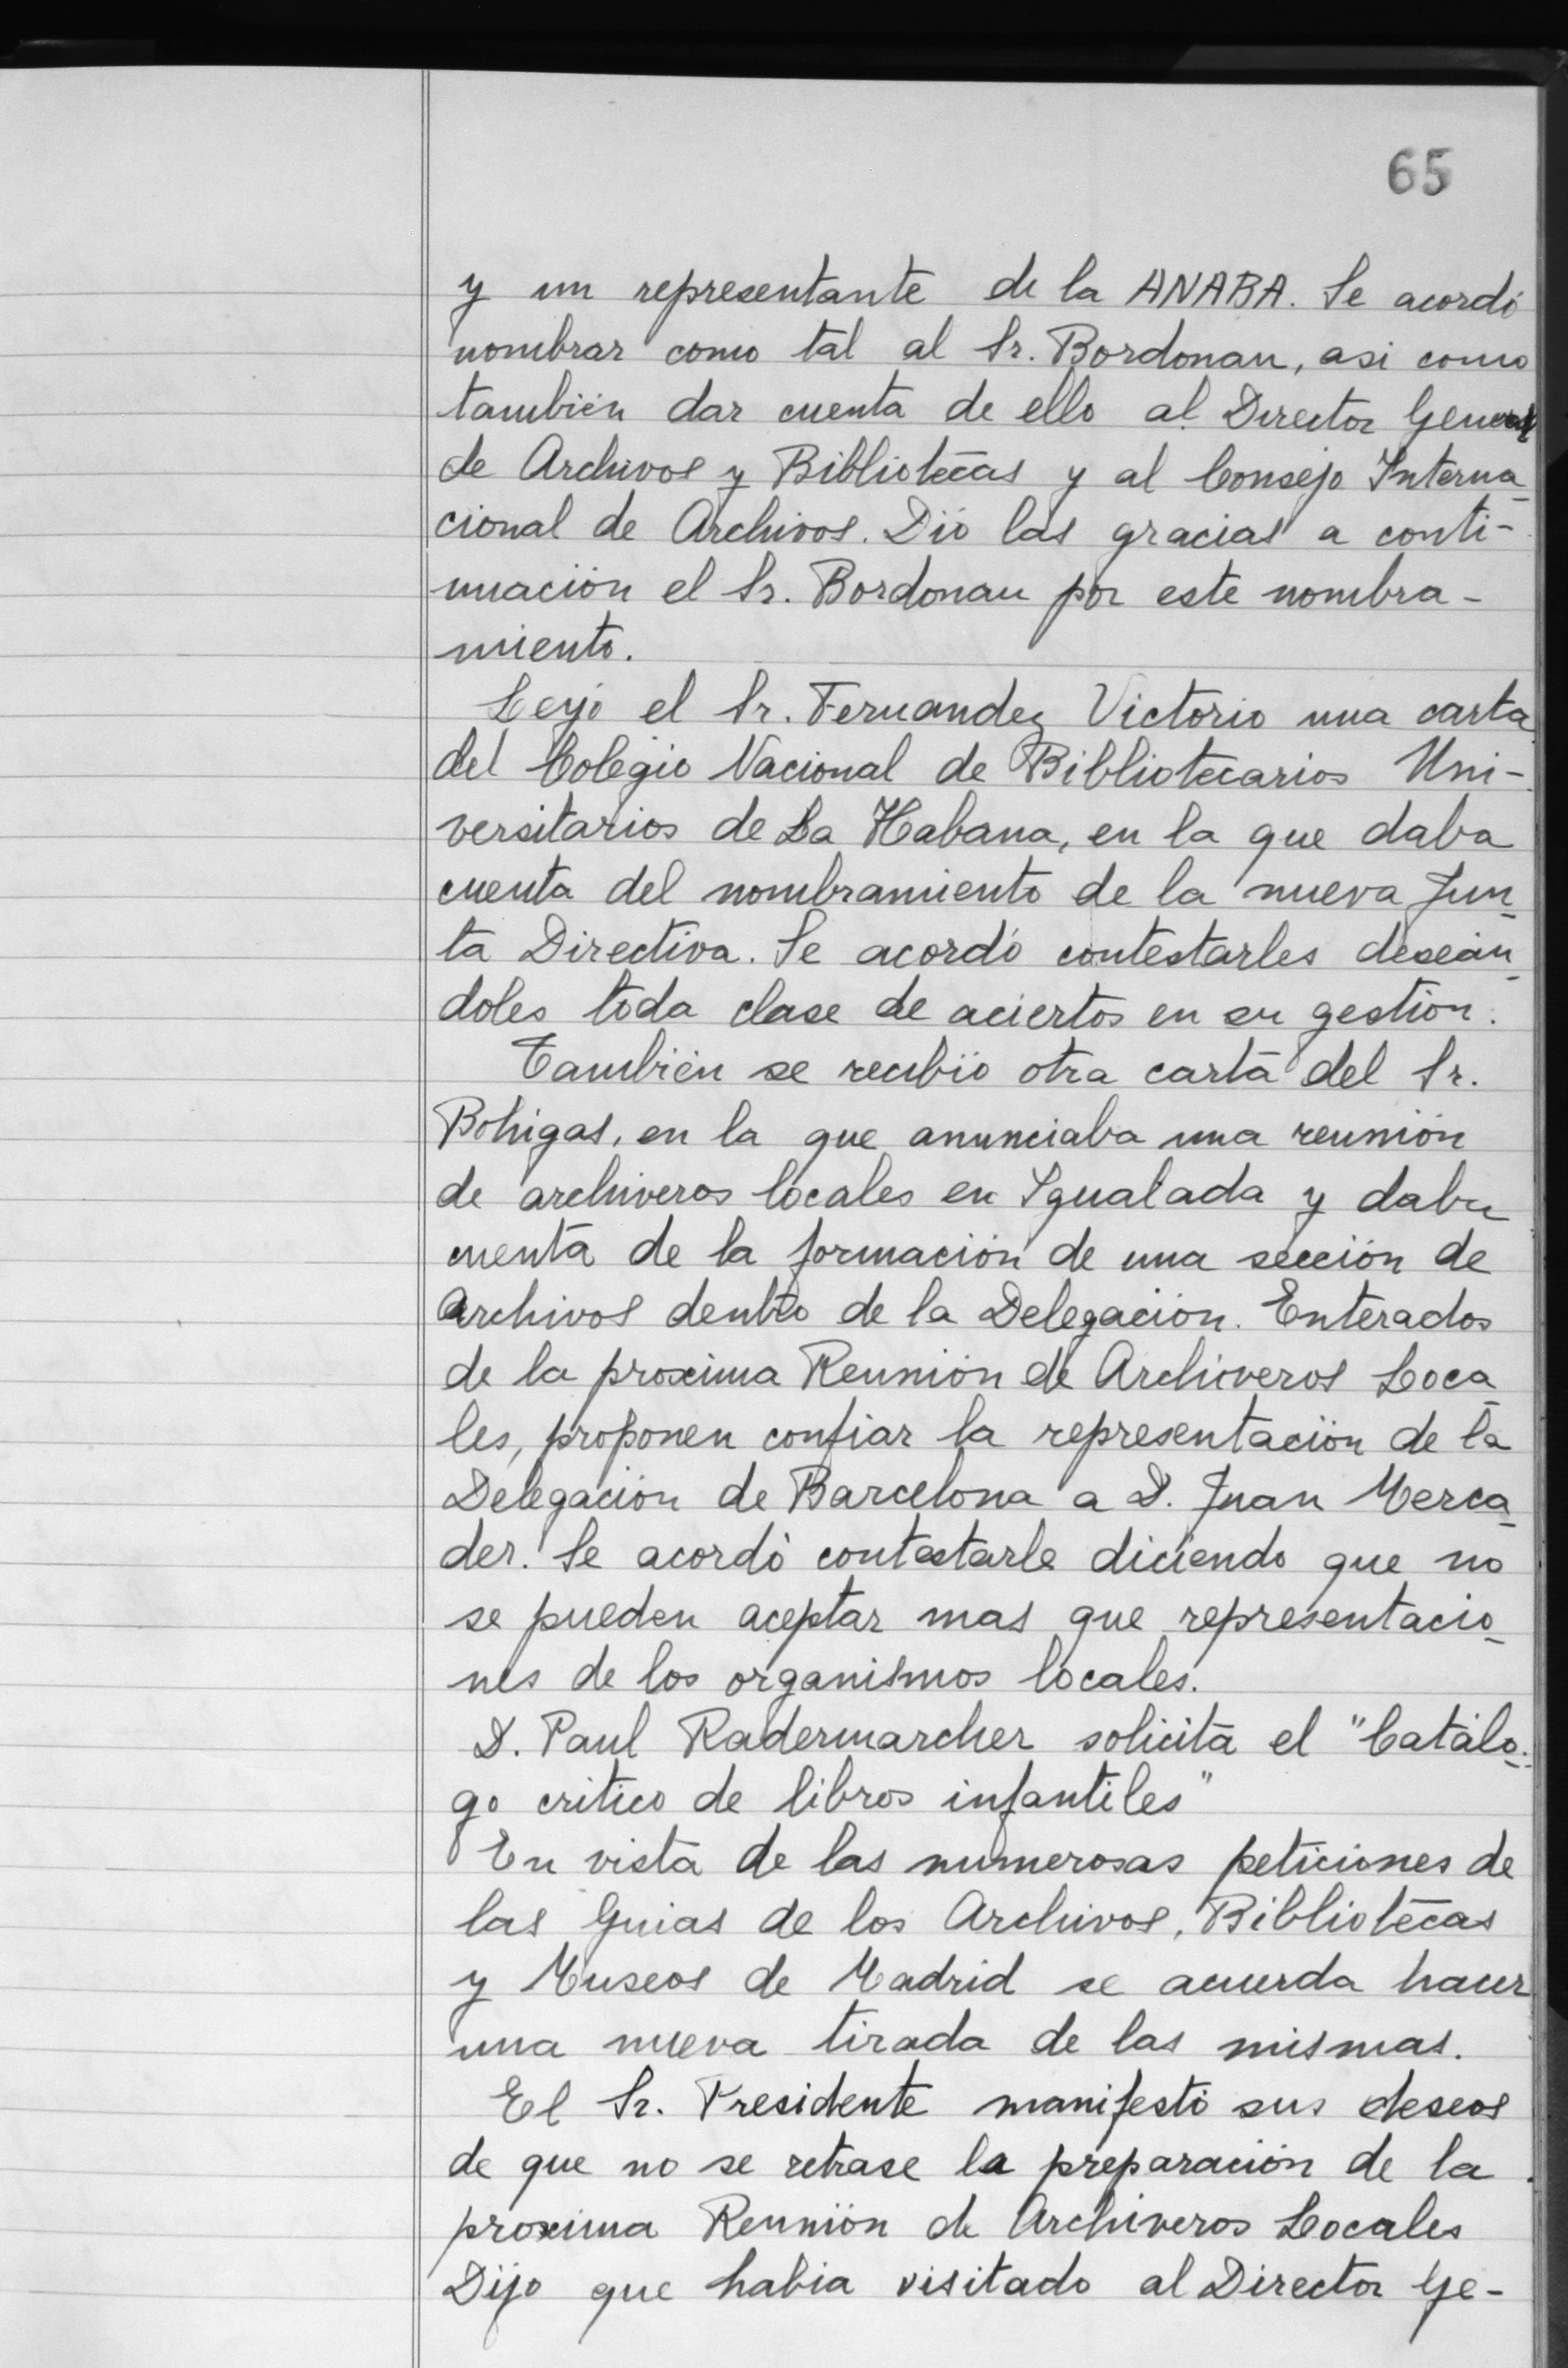 65
y un representante de la ANABA. Se acordó
nombrar como tal al Sr. Bordonau, asi como
también dar cuenta de ello al Director General
de Archivos y Bibliotecas y al Consejo Interna-
cional de Archivos. Dió las gracias a conti-
nuación el Sr. Bordonau por este nombra-
miento.
Leyó el Sr. Fernandez Victorio una carta
del Colegio Nacional de Bibliotecarios Uni-
versitarios de La Habana, en la que daba
cuenta del nombramiento de la nueva Jun-
ta Directiva. Se acordó contestarles deseán-
doles toda clase de aciertos en su gestión.
También se recibió otra carta del Sr.
Bohigas, en la que anunciaba una reunión
de archiveros locales en Igualada y daba
cuenta de la formación de una sección de
Archivos dentro de la Delegación. Enterados
de la proxima Reunión de Archiveros Loca-
les, proponen confiar la representación de la
Delegación de Barcelona a D. Juan Merca-
der. Se acordó contestarle diciendo que no
se pueden aceptar mas que representacio-
nes de los organismos locales.
D. Paul Radermarcher solicita el "Catálo-
go critico de libros infantiles"
En vista de las numerosas peticiones de
las Guias de los Archivos, Bibliotecas
y Museos de Madrid se acuerda hacer
una nueva tirada de las mismas.
El Sr. Presidente manifestó sus deseos
de que no se retrase la preparación de la
proxima Reunión de Archiveros Locales
Dijo que habia visitado al Director Ge-